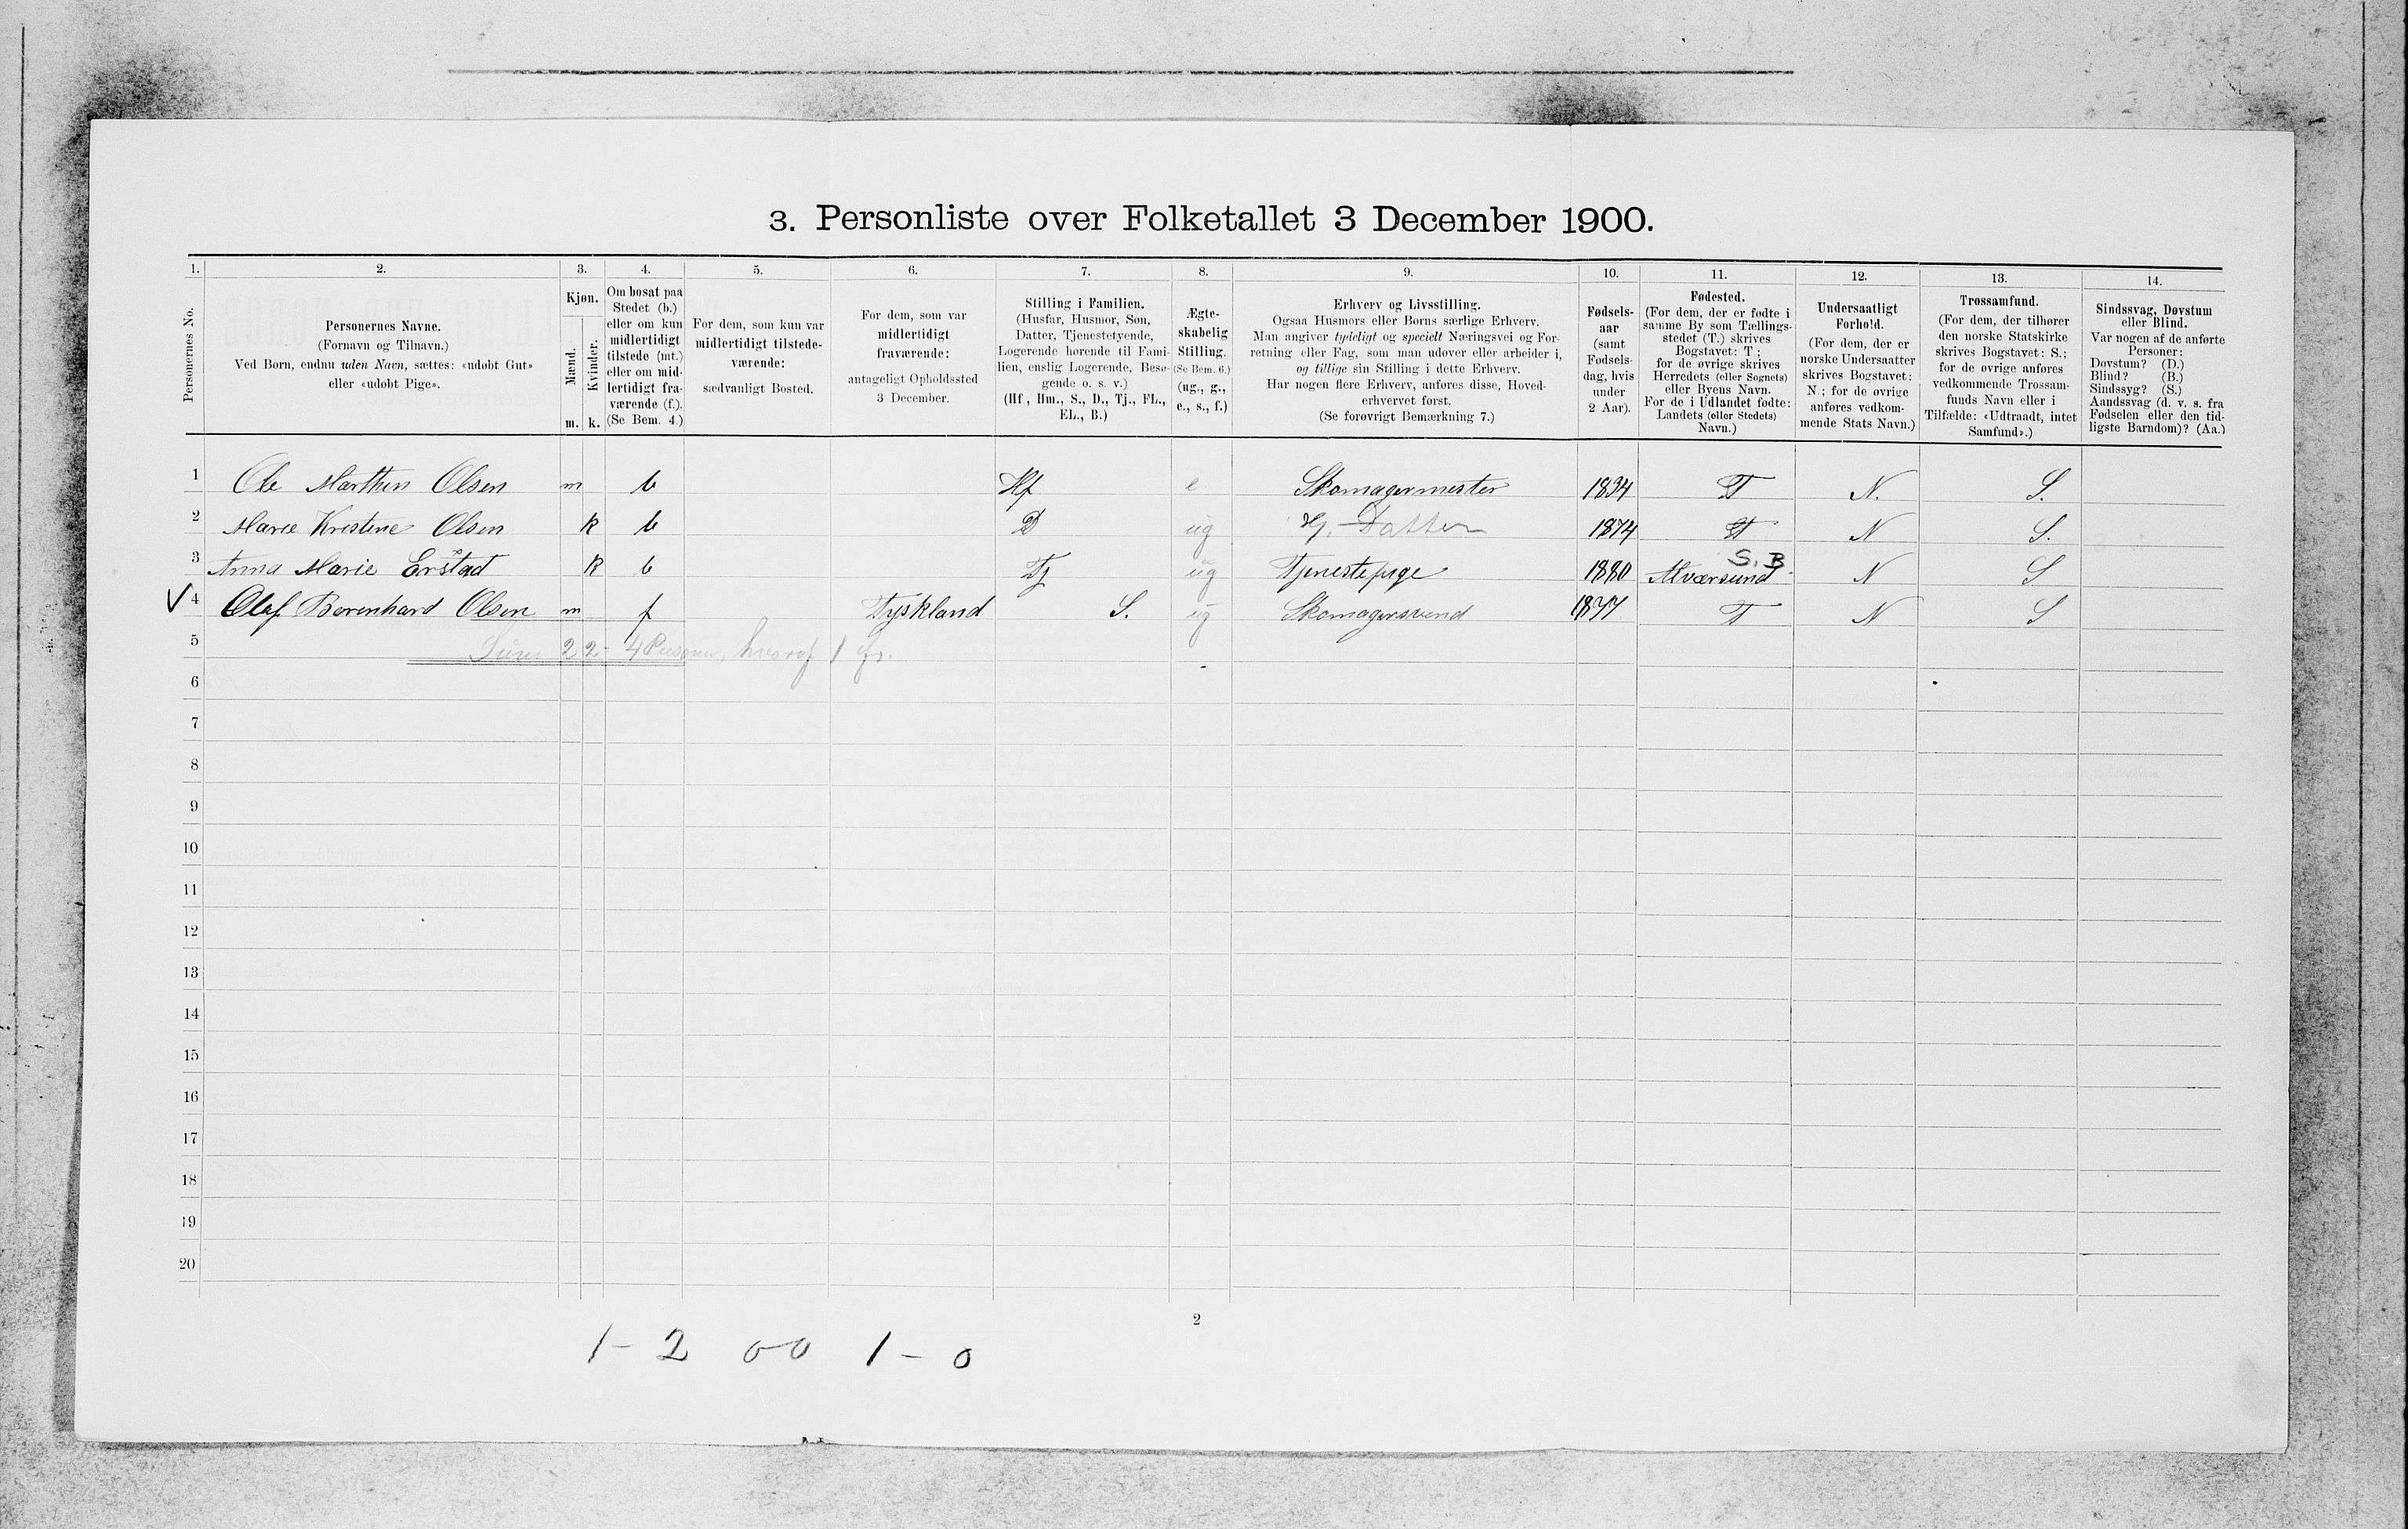 3. Personliste over Folketallet 3 December 1900.
1. 2. 3. 4. 5. 6. 7. 8. 9. 10. 11. 12. 13. 14.
Personernes No.
Personernes Navne.
(Fornavn og Tilnavn.)
Ved Børn, endnu uden Navn, sættes: «udøbt Gut»
eller «udøbt Pige».
Kjøn.
Mænd.
Kvinder.
m. k.
Om bosat paa
Stedet (b.)
eller om kun
midlertidigt
tilstede (mt.)
eller om mid-
lertidigt fra-
værende (f.).
(Se Bem. 4.)
For dem, som kun var
midlertidigt tilstede-
værende:
sædvanligt Bosted.
For dem, som var
midlertidigt
fraværende:
antageligt Opholdssted
3 December.
Stilling i Familien.
(Husfar, Husmor, Søn,
Datter, Tjenestetyende,
Logerende hørende til Fami-
lien, enslig Logerende, Besø-
gende o. s. v.)
(Hf, Hm., S., D., Tj., FL.,
EL., B.)
Ægte-
skabelig
Stilling.
(Se Bem. 6.)
(ug., g.,
e., s., f.)
Erhverv og Livsstilling.
Ogsaa Husmors eller Børns særlige Erhverv.
Man angiver tydeligt og specielt Næringsvei og For-
retning eller Fag, som man udøver eller arbeider i,
og tillige sin Stilling i dette Erhverv.
Har nogen flere Erhverv, anføres disse, Hoved-
erhvervet først.
(Se forøvrigt Bemærkning 7.)
Fødsels-
aar
(samt
Fødsels-
dag, hvis
under
2 Aar).
Fødested.
(For dem, der er fødte i
samme By som Tællings-
stedet (T.) skrives
Bogstavet: T;
for de øvrige skrives
Herredets (eller Sognets)
eller Byens Navn.
For de i Udlandet fødte:
Landets (eller Stedets)
Navn.)
Undersaatligt
Forhold.
(For dem, der er
norske Undersaatter
skrives Bogstavet:
N.; for de øvrige
anføres vedkom-
mende Stats Navn.)
Trossamfund.
(For dem, der tilhører
den norske Statskirke
skrives Bogstavet: S.;
for de øvrige anføres
vedkommende Trossam-
funds Navn eller i
Tilfælde: «Udtraadt, intet
Samfund».)
Sindssvag, Døvstum
eller Blind.
Var nogen af de anførte
Personer:
Døvstum? (D.)
Blind? (B.)
Sindssyg? (S.)
Aandssvag (d. v. s. fra
Fødselen eller den tid-
ligste Barndom)? (Aa.)
1 Ole Marthin Olsen m b Hf e Skomagermester 1834 T N. S.
2 Marie Kristine Olsen k b D ug Hj. Datter 1874 T N S.
S. B.
3 Anna Marie Erstad k b Tj ug Tjenestepige 1880 Alværsund N S
√ 4 Olaf Berenhard Olsen m f Tyskland S. ug Skomagersvend 1877 T N S
5 2 2 4 Personer, hvoraf 1 fr.
6
7
8
9
10
11
12
13
14
15
16
17
18
19
20
2
1 - 2 00 1 - 0